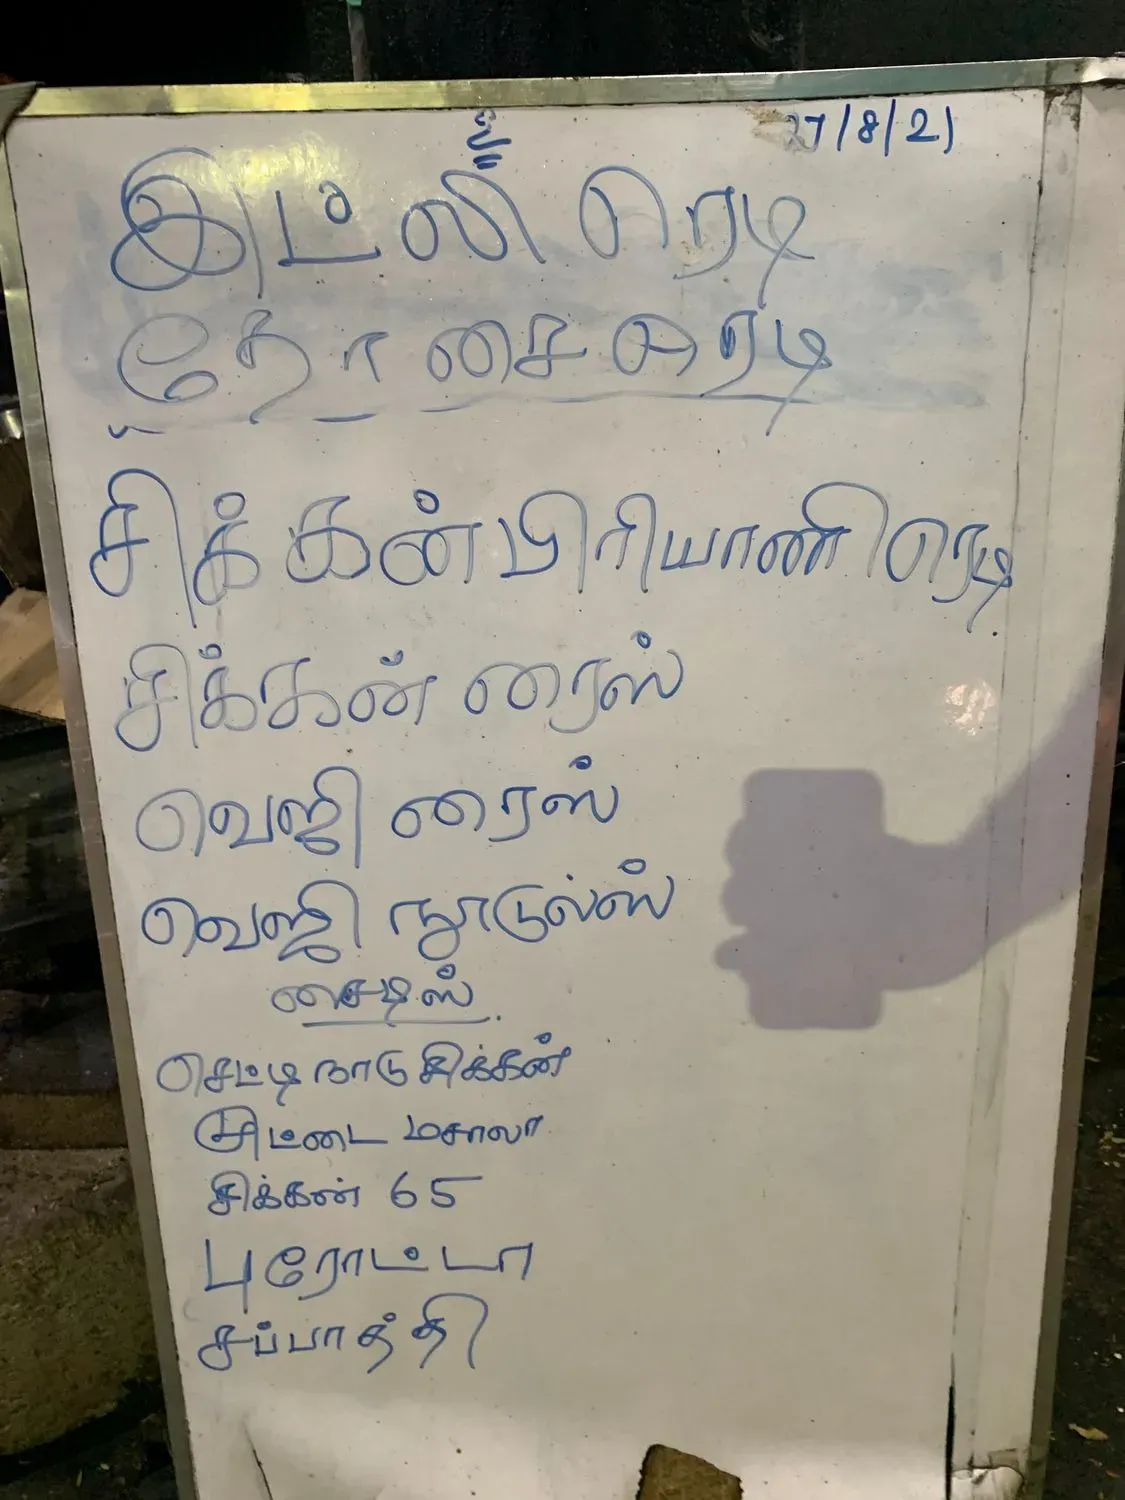 உ
27/8/21
இட்லி ரெடி
தோசை ரெடி
சிக்கன் பிரியாணி ரெடி
சிக்கன் ரைஸ்
வெஜி ரைஸ்
வெஜி நூடுல்ஸ்
சைடிஸ்
செட்டிநாடு சிக்கன்
முட்டை மசாலா
சிக்கன் 65
புரோட்டா
சப்பாத்தி